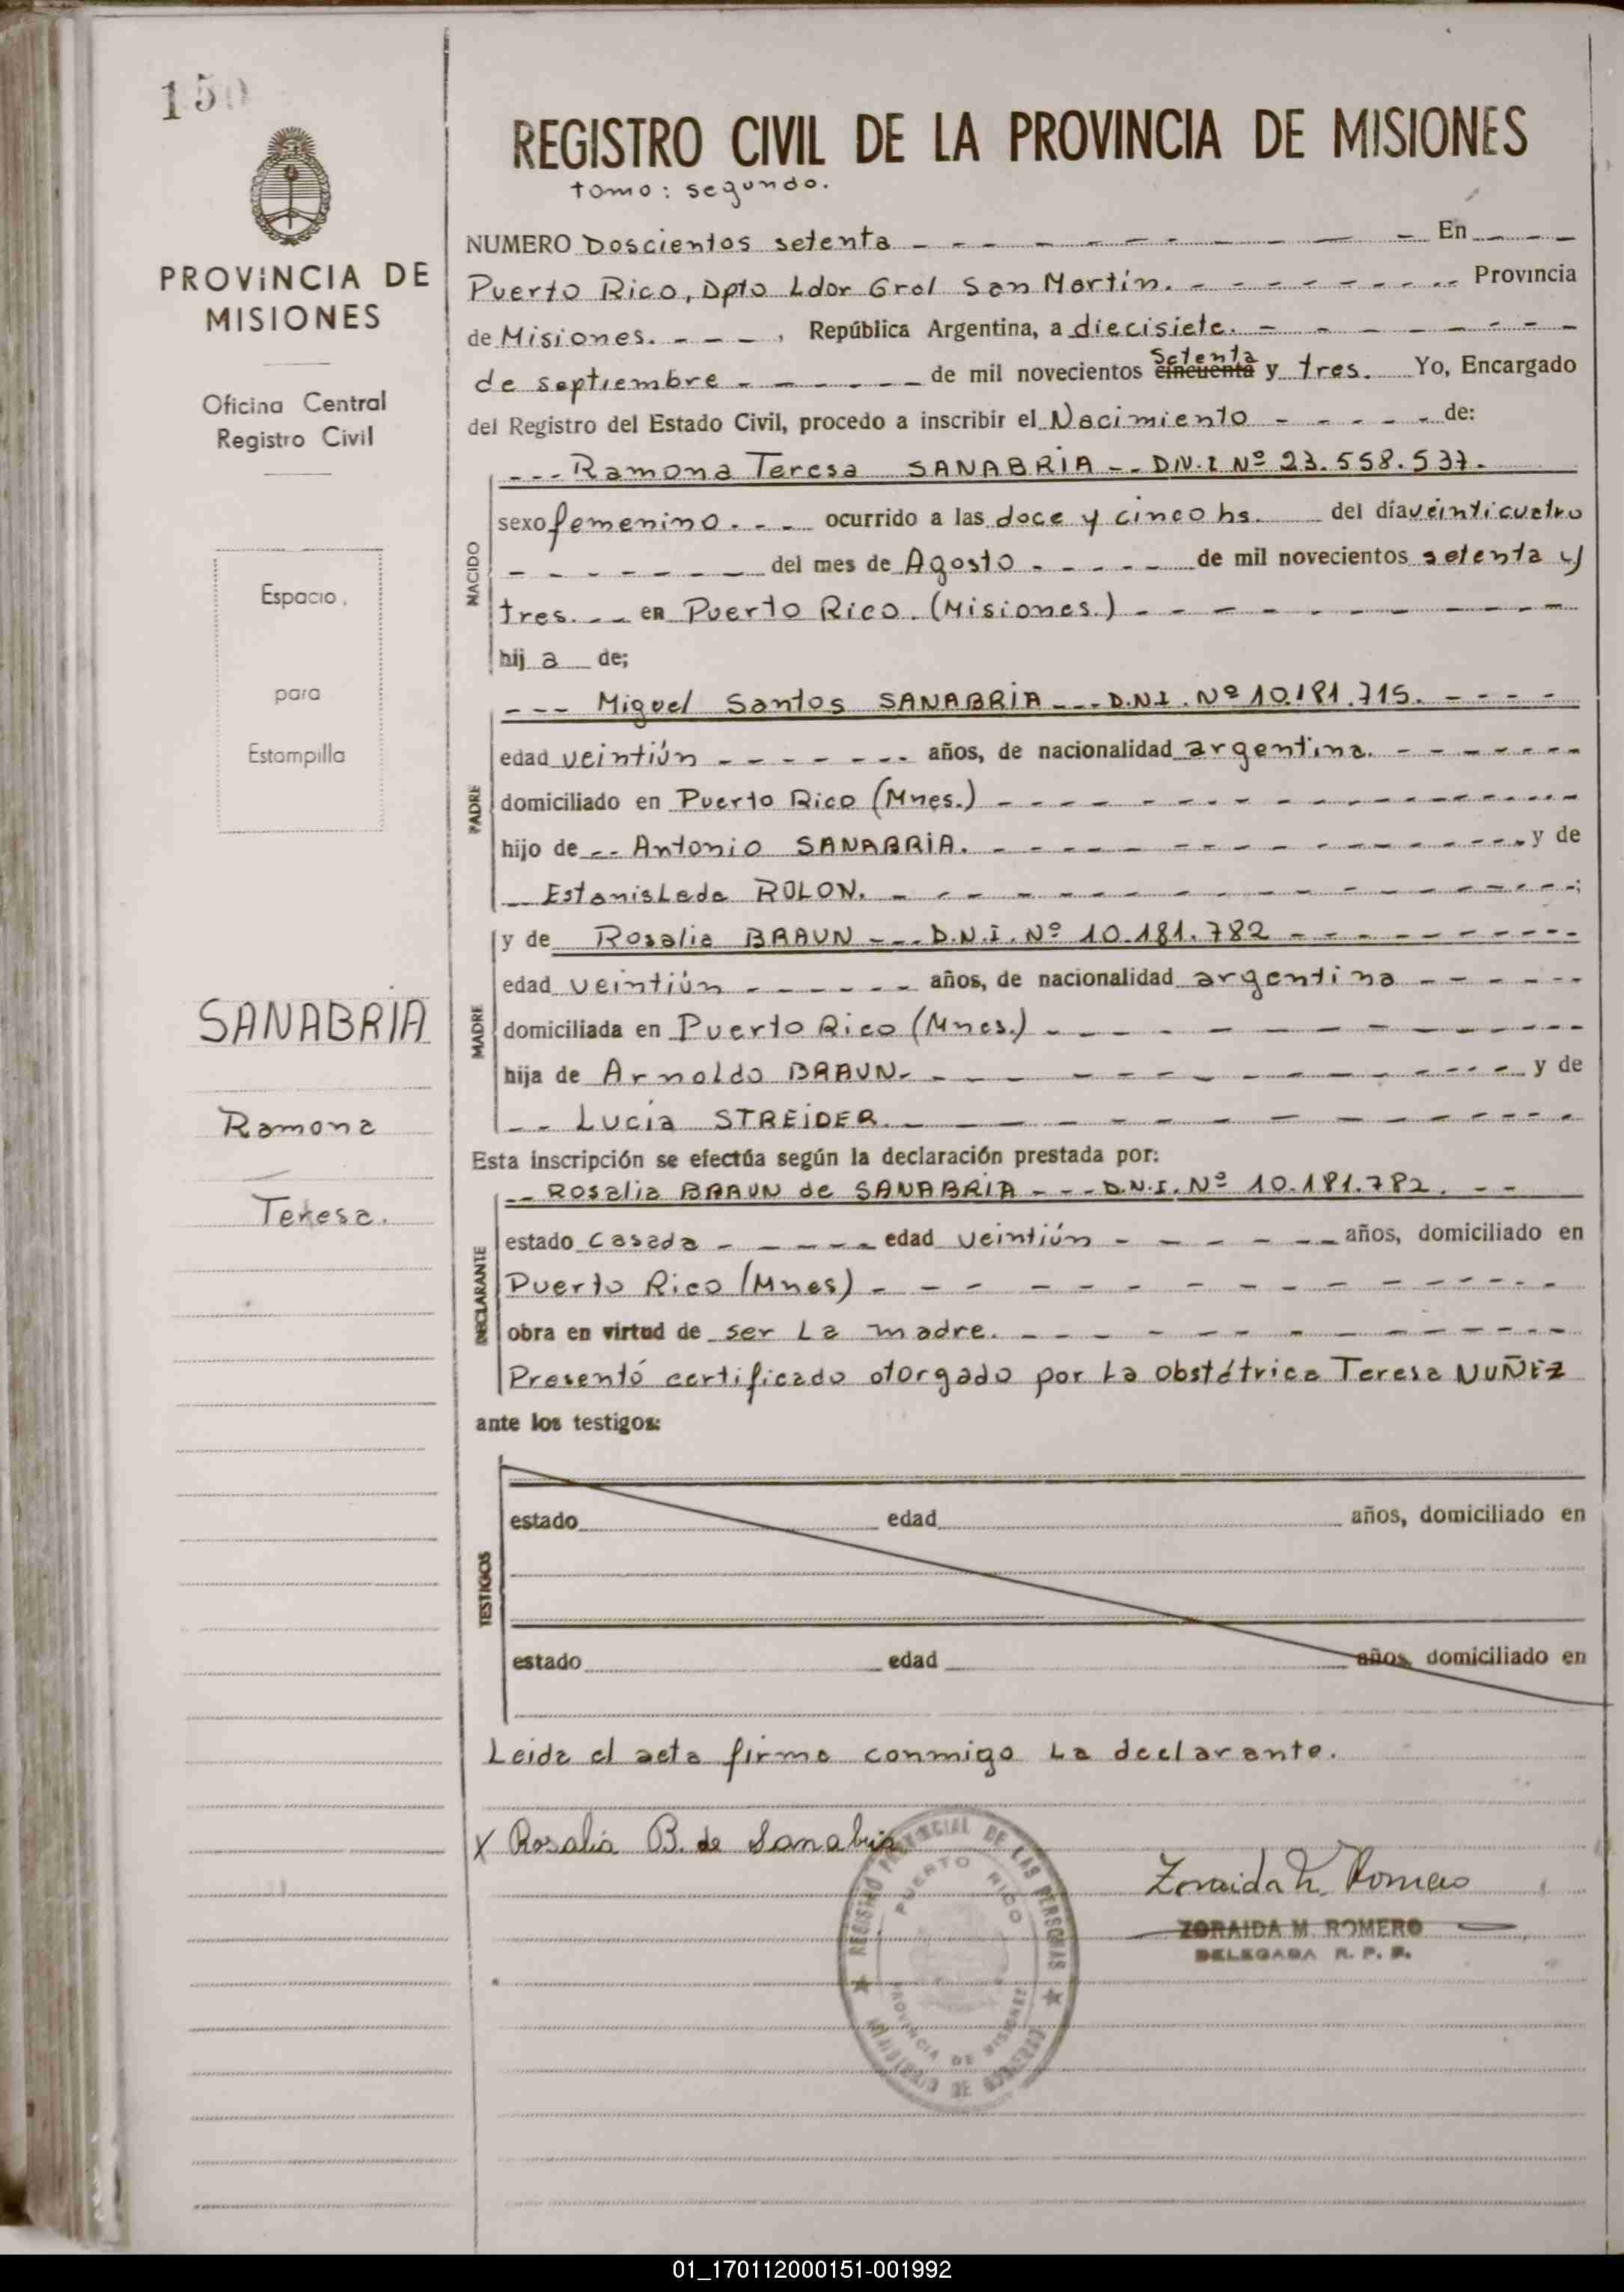 150
REGISTRO CIVIL DE LA PROVINCIA DE MISIONES
tomo: segundo.
PROVINCIA DE
MISIONES
Oficina Central
Registro Civil
Espacio
para
Estampilla
SANABRIA
Ramona
Teresa.
NUMERO Doscientos setenta - - - - - - - - - En - - -
Puerto Rico, Dpto Ldor Gral San Martín. - - - - - - - - Provincia
de Misiones. - - - , República Argentina, a diecisiete. - - - - - - - -
Setenta
de septiembre - - - - - - de mil novecientos cincuenta y tres. Yo, Encargado
del Registro del Estado Civil, procedo a inscribir el Nacimiento - - - - - de:
NACIDO
- - - Ramona Teresa SANABRIA - - DN.I Nº 23.558.537.
sexo femenino. - - - ocurrido a las doce y cinco hs. del día veinticuatro
- - - - - - - del mes de Agosto - - - - - de mil novecientos setenta y
tres. - - en Puerto Rico. (Misiones.) - - - - - - - - - -
hij a de;
PADRE
- - - Miguel Santos SANABRIA - - - D.N.I. Nº 10.181.715. - - - -
edad veintiún - - - - - - años, de nacionalidad argentina. - - - - - - -
domiciliado en Puerto Rico (Mnes.) - - - - - - - - - - - - - -
hijo de - - Antonio SANABRIA. - - - - - - - - - - - - - y de
- Estanislada ROLON. - - - - - - - - - - - - - - ;
MADRE
y de Rosalia BRAUN - - - D.N.I. Nº 10.181.782 - - - - - - - - -
edad veintiún - - - - - - años, de nacionalidad argentina - - - - - -
domiciliada en Puerto Rico (Mnes.) - - - - - - - - - - - -
hija de Arnoldo BRAUN. - - - - - - - - - - - - - y de
- - Lucía STREIDER. - - - - - - - - - - - - - -
Esta inscripción se efectúa según la declaración prestada por:
DECLARANTE
- - Rosalia BRAUN de SANABRIA - - - D.N.I. Nº 10.181.782. - -
estado casada - - - - - edad veintiún - - - - - - años, domiciliado en
Puerto Rico (Mnes) - - - - - - - - - - - - - - -
obra en virtud de ser La madre. - - - - - - - - - - - - -
Presentó certificado otorgado por La obstétrica Teresa NUÑEZ
ante los testigos:
TESTIGOS
estado edad años, domiciliado en
estado edad años, domiciliado en
Leida el acta firma conmigo La declarante.
X Rosalia B. de Sanabria
Zoraida M. Romero
ZORAIDA M. ROMERO
DELEGADA R. P. P.
REGISTRO PROVINCIAL DE LAS PERSONAS
PUERTO RICO
PROVINCIA DE MISIONES
MINISTERIO DE GOBIERNO
01_170112000151-001992